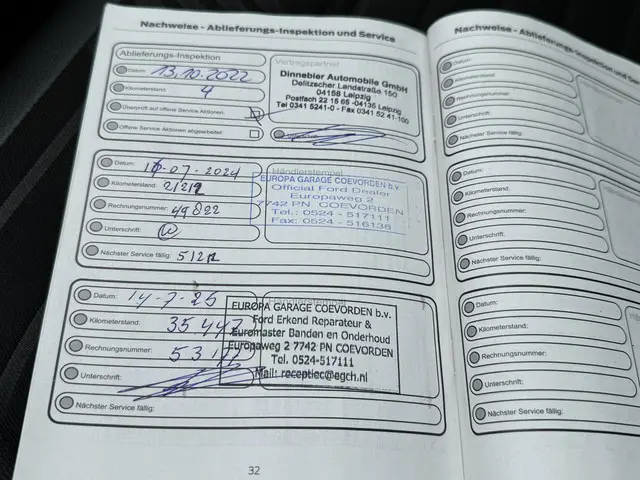 Nachweise - Ablieferungs-Inspektion und Service
Ablieferungs-Inspektion
Datum: 13.10.2022
Kilometerstand: 4
Überprüft auf offene Service Aktionen:
Offene Service Aktionen abgearbeitet:
Vertragspartner
Dinnebier Automobile GmbH
Delitzscher Landstraße 150
04158 Leipzig
Postfach 22 15 65 - 04135 Leipzig
Tel 0341 5241-0 - Fax 0341 52 41-100
Datum: -07-2024
Kilometerstand:
Rechnungsnummer: 49822
Unterschrift:
Nächster Service fällig:
Händlerstempel
EUROPA GARAGE COEVORDEN b.v.
Official Ford Dealer
Europaweg 2
7742 PN COEVORDEN
Tel.: 0524 - 517111
Fax: 0524 - 516136
Datum: 14-7-25
Kilometerstand: 35447
Rechnungsnummer:
Unterschrift:
Nächster Service fällig:
Händlerstempel
EUROPA GARAGE COEVORDEN b.v.
Ford Erkend Reparateur &
Euromaster Banden en Onderhoud
Europaweg 2 7742 PN COEVORDEN
Tel. 0524-517111
Mail: receptiec@egch.nl
32
Nachweise - Ablieferungs-Inspektion und
Datum:
Kilometerstand:
Rechnungsnummer:
Unterschrift:
Nächster Service fällig:
Datum:
Kilometerstand:
Rechnungsnummer:
Unterschrift:
Nächster Service fällig:
Datum:
Kilometerstand:
Rechnungsnummer:
Unterschrift:
Nächster Service fällig: